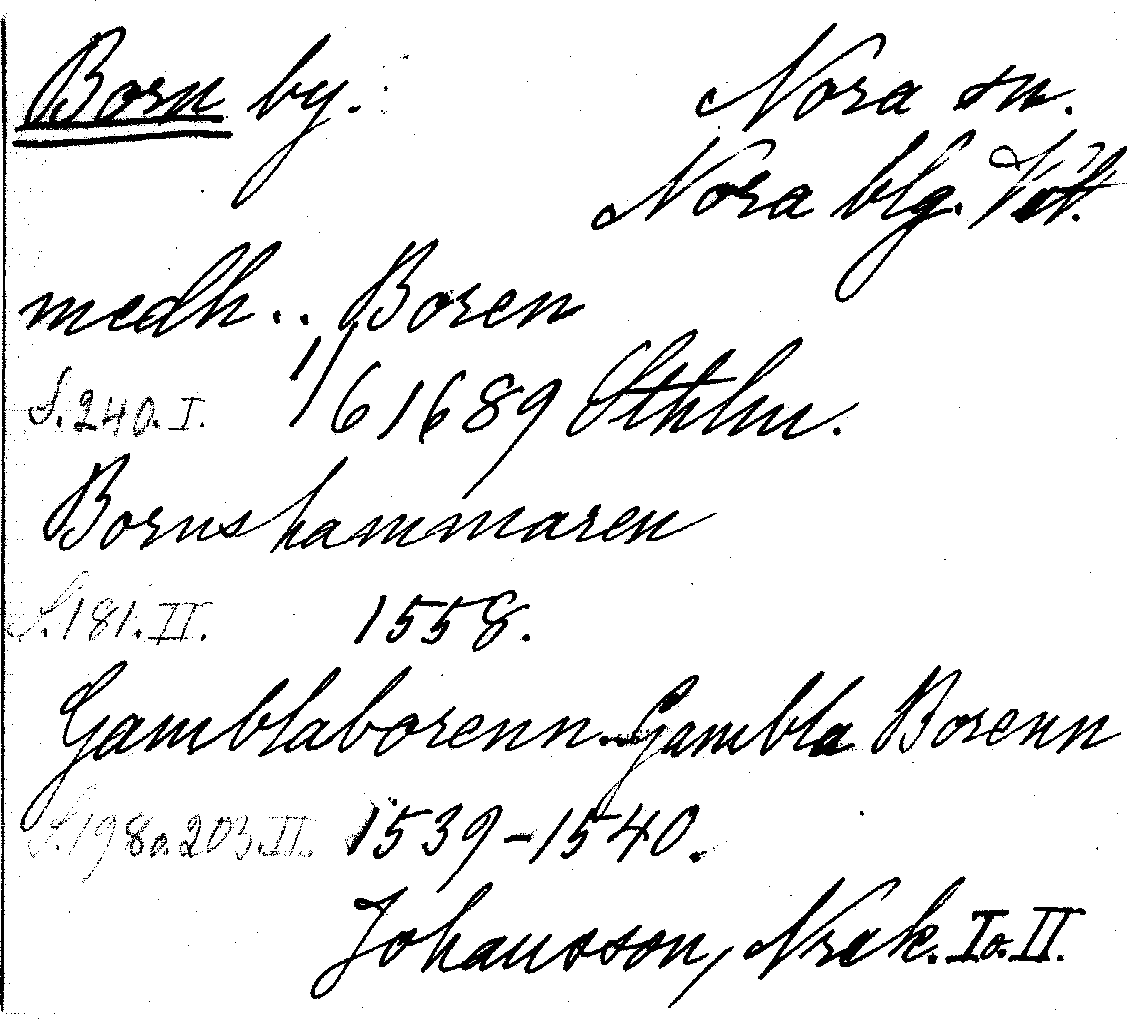 Born by.
Nora sn.
Nora blg. Vstm.
medh.. Boren
S. 240. I. 1/6 1689 Sthlm.
Bornshammaren
S. 181. II. 1558.
Gamblaborenn - Gambla Borenn
S. 198 o. 203. II. 1539-1540.
Johansson, Nrak. I o. II.